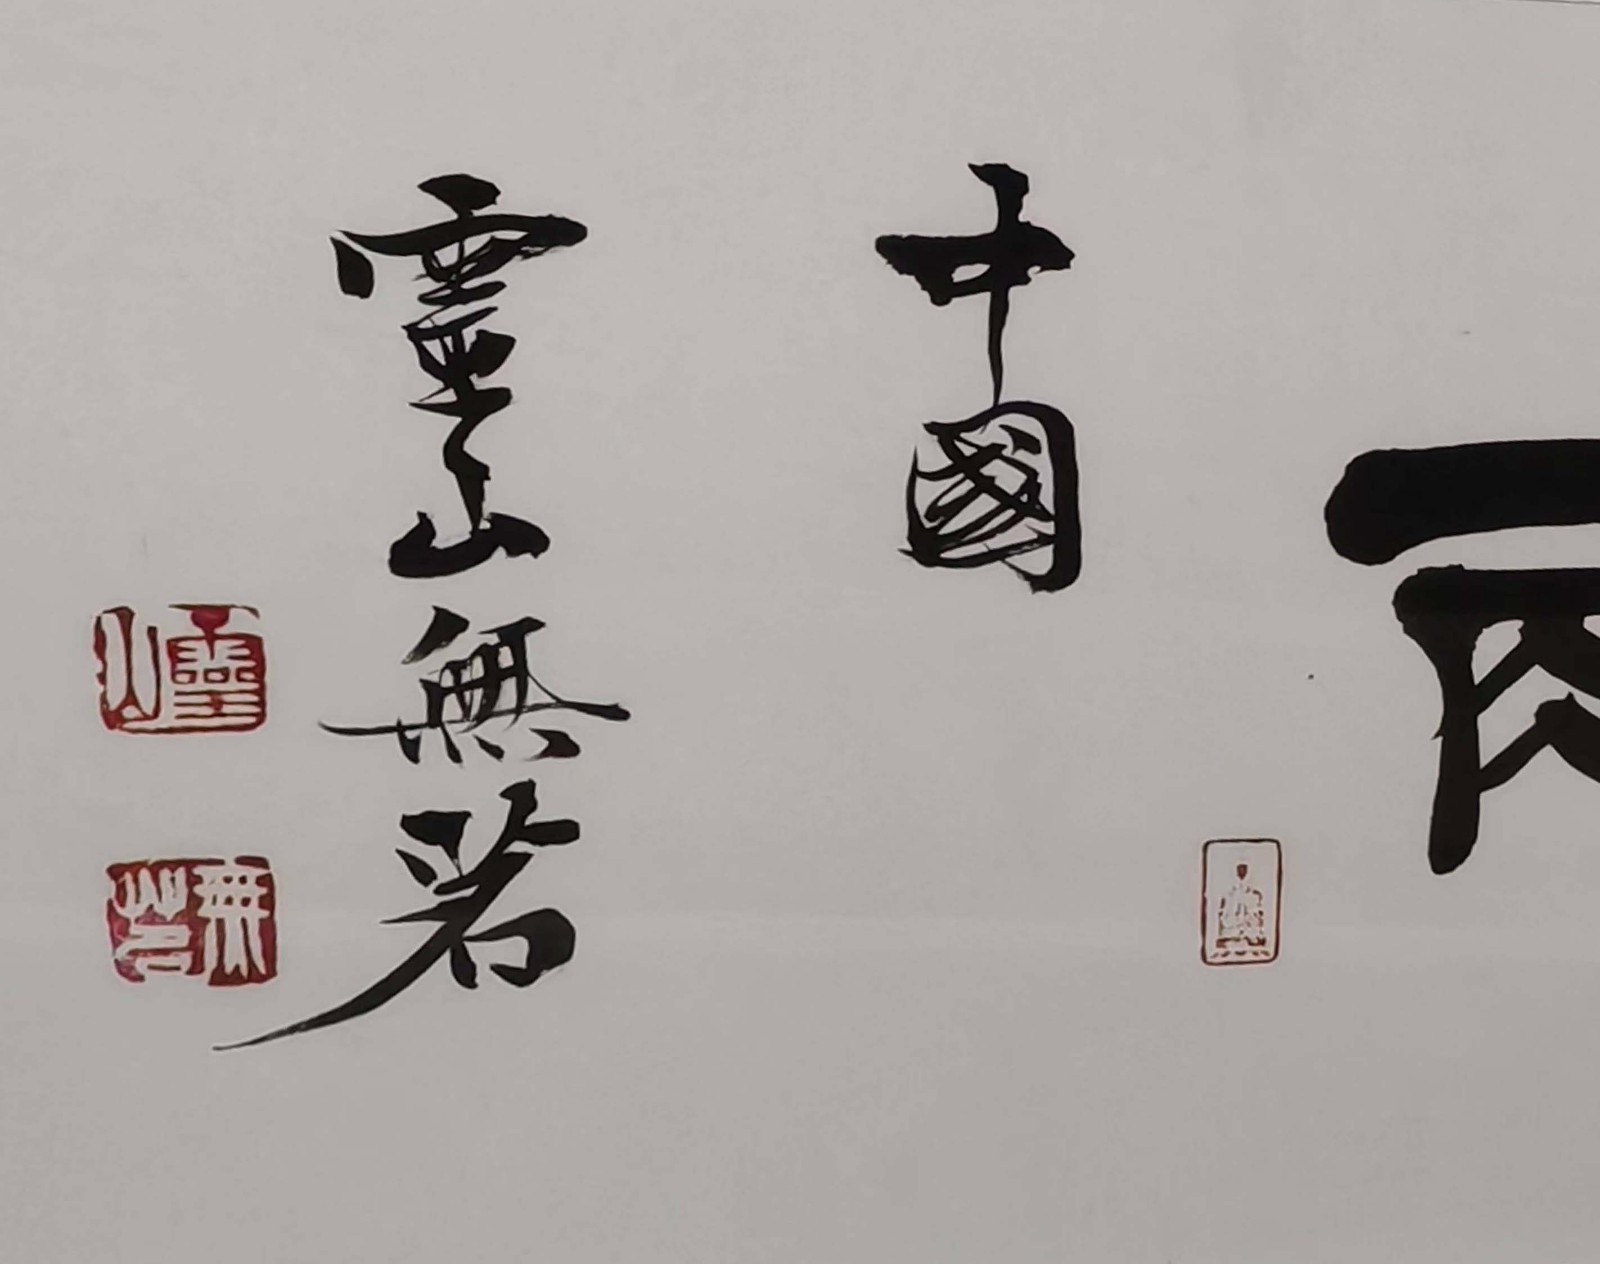 中國
靈山無若
靈山
無若